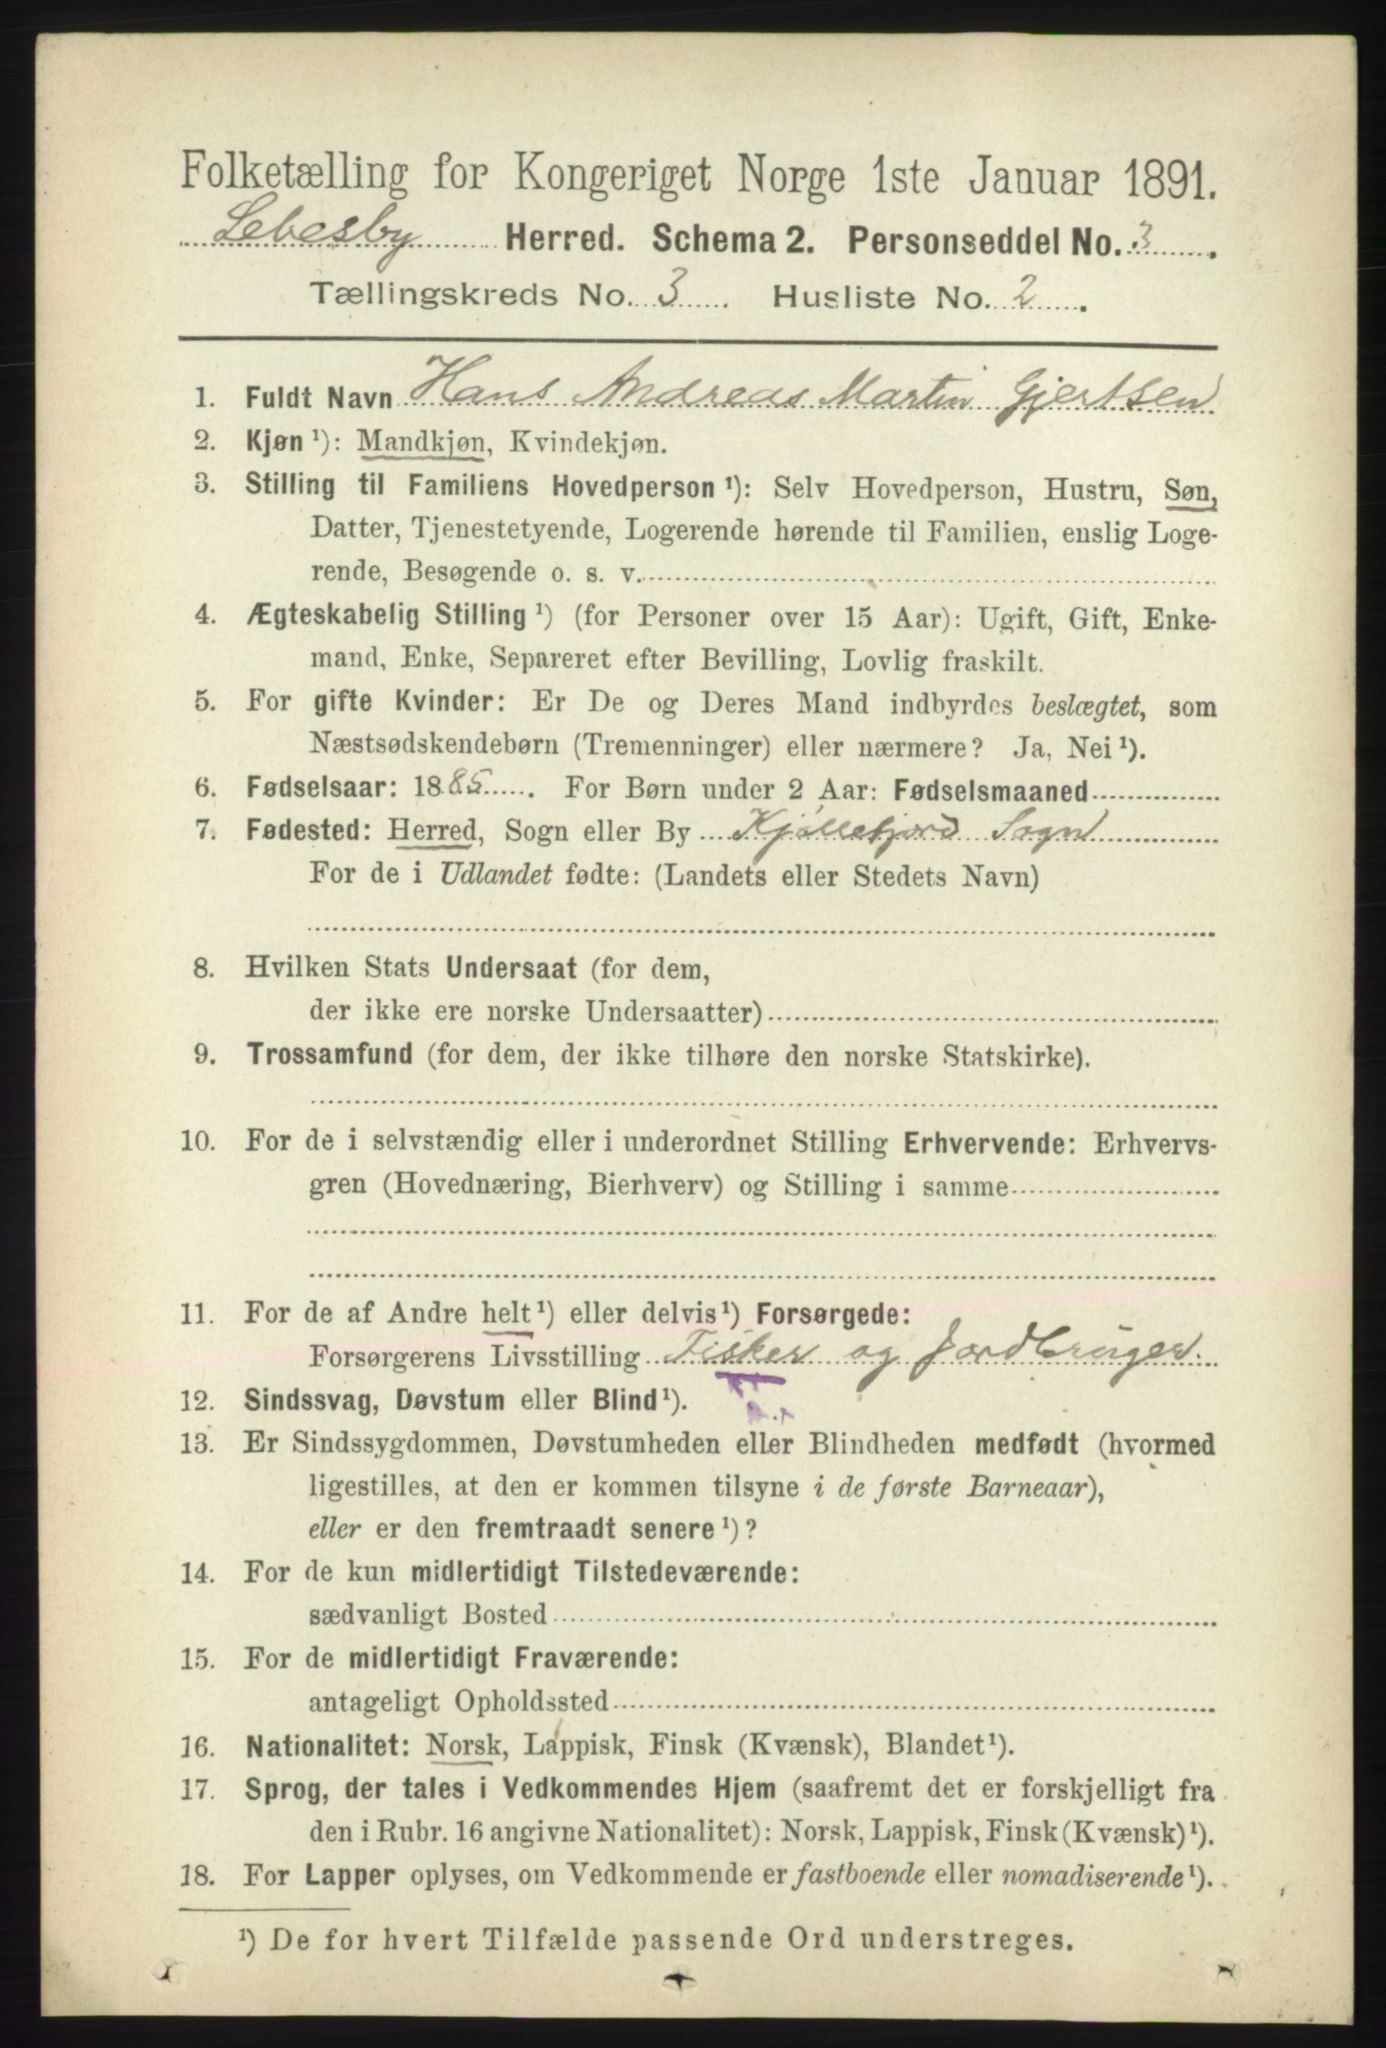 Folketælling for Kongeriget Norge 1ste Januar 1891.
Lebesby Herred. Schema 2. Personseddel No. 3.
Tællingskreds No. 3. Husliste No. 2.
1. Fuldt Navn Hans Andreas Martin Gjertsen
2. Kjøn ¹): Mandkjøn, Kvindekjøn.
3. Stilling til Familiens Hovedperson ¹): Selv Hovedperson, Hustru, Søn,
Datter, Tjenestetyende, Logerende hørende til Familien, enslig Loge-
rende, Besøgende o. s. v.
4. Ægteskabelig Stilling ¹) (for Personer over 15 Aar): Ugift, Gift, Enke-
mand, Enke, Separeret efter Bevilling, Lovlig fraskilt.
5. For gifte Kvinder: Er De og Deres Mand indbyrdes beslægtet, som
Næstsødskendebørn (Tremenninger) eller nærmere? Ja, Nei ¹).
6. Fødselsaar: 1885. For Børn under 2 Aar: Fødselsmaaned
7. Fødested: Herred, Sogn eller By Kjøllefjord Sogn
For de i Udlandet fødte: (Landets eller Stedets Navn)
8. Hvilken Stats Undersaat (for dem,
der ikke ere norske Undersaatter)
9. Trossamfund (for dem, der ikke tilhøre den norske Statskirke).
10. For de i selvstændig eller i underordnet Stilling Erhvervende: Erhvervs-
gren (Hovednæring, Bierhverv) og Stilling i samme
11. For de af Andre helt ¹) eller delvis ¹) Forsørgede:
Forsørgerens Livsstilling Fisker og Jordbruger
12. Sindssvag, Døvstum eller Blind ¹).
13. Er Sindssygdommen, Døvstumheden eller Blindheden medfødt (hvormed
ligestilles, at den er kommen tilsyne i de første Barneaar),
eller er den fremtraadt senere ¹)?
14. For de kun midlertidigt Tilstedeværende:
sædvanligt Bosted
15. For de midlertidigt Fraværende:
antageligt Opholdssted
16. Nationalitet: Norsk, Lappisk, Finsk (Kvænsk), Blandet ¹).
17. Sprog, der tales i Vedkommendes Hjem (saafremt det er forskjelligt fra
den i Rubr. 16 angivne Nationalitet): Norsk, Lappisk, Finsk (Kvænsk) ¹).
18. For Lapper oplyses, om Vedkommende er fastboende eller nomadiserende ¹).
¹) De for hvert Tilfælde passende Ord understreges.